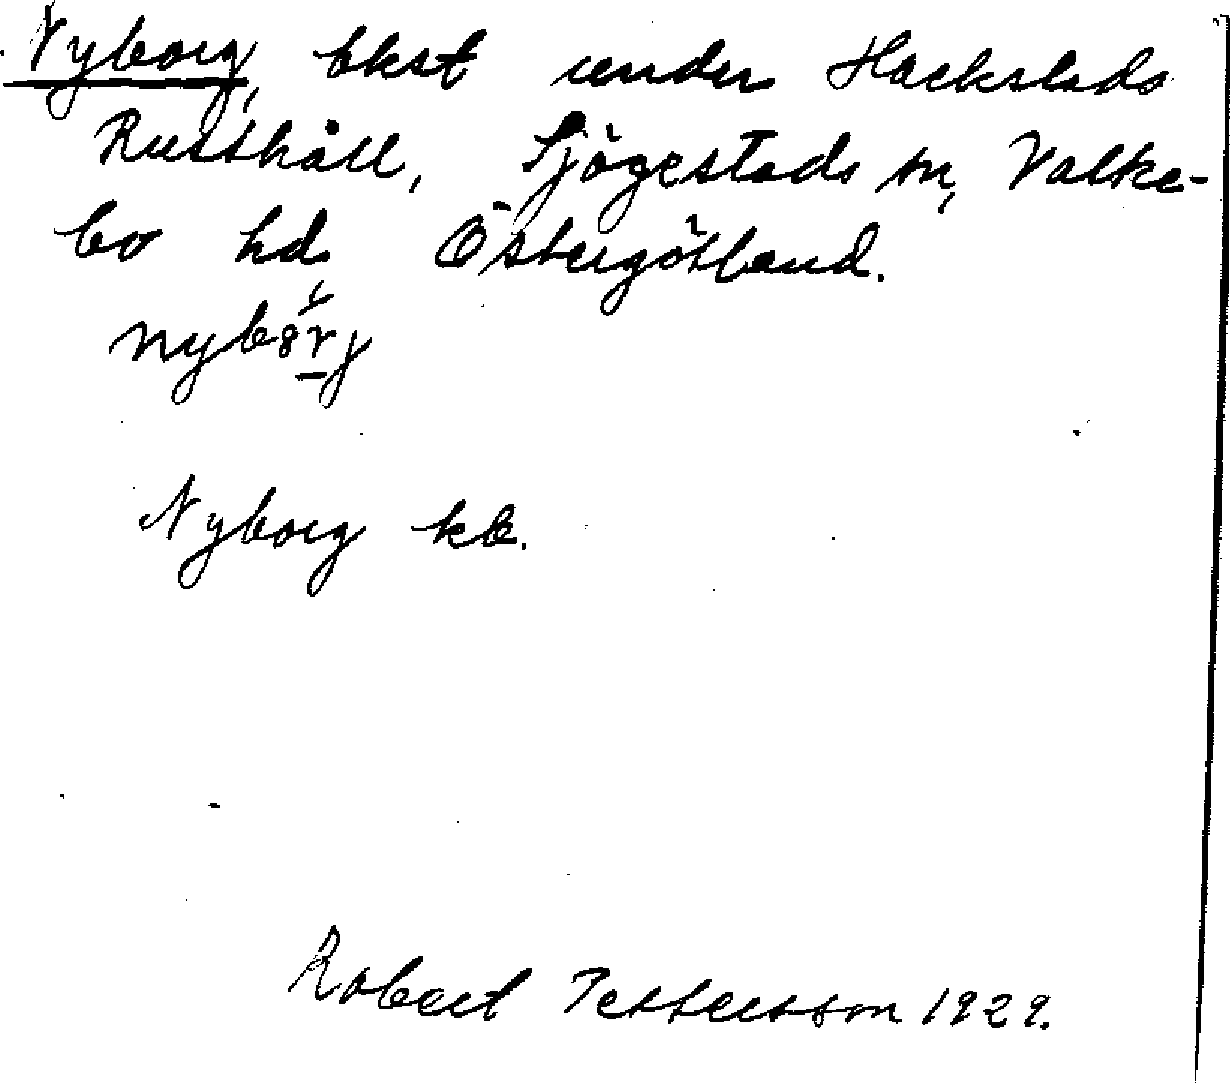 Nyborg, bkst under Hackstads
Rusthåll, Sjögestads sn, Valke-
bo hd, Östergötland.
Nyborg kb.
Robert Pettersson 1929.